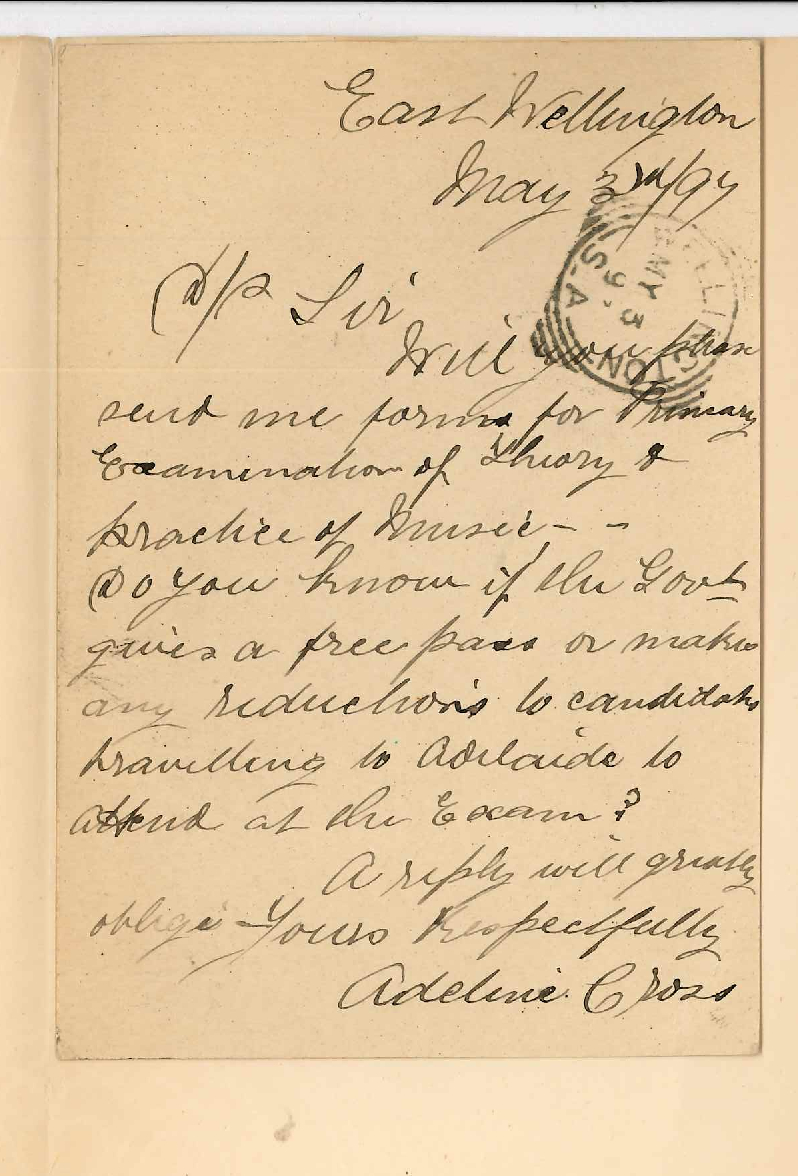 East Wellington
May 3rd/97
D/r Sir
Will you please
send me forms for Primary
Examination of Theory &
practice of Music - -
Do you know if the Govt
gives a free pass or makes
any reductions to candidates
travelling to Adelaide to
attend at the Exam?
A reply will greatly
oblige - Yours Respectfully
Adeline Cross
WELLINGTON
MY 3
9
S.A